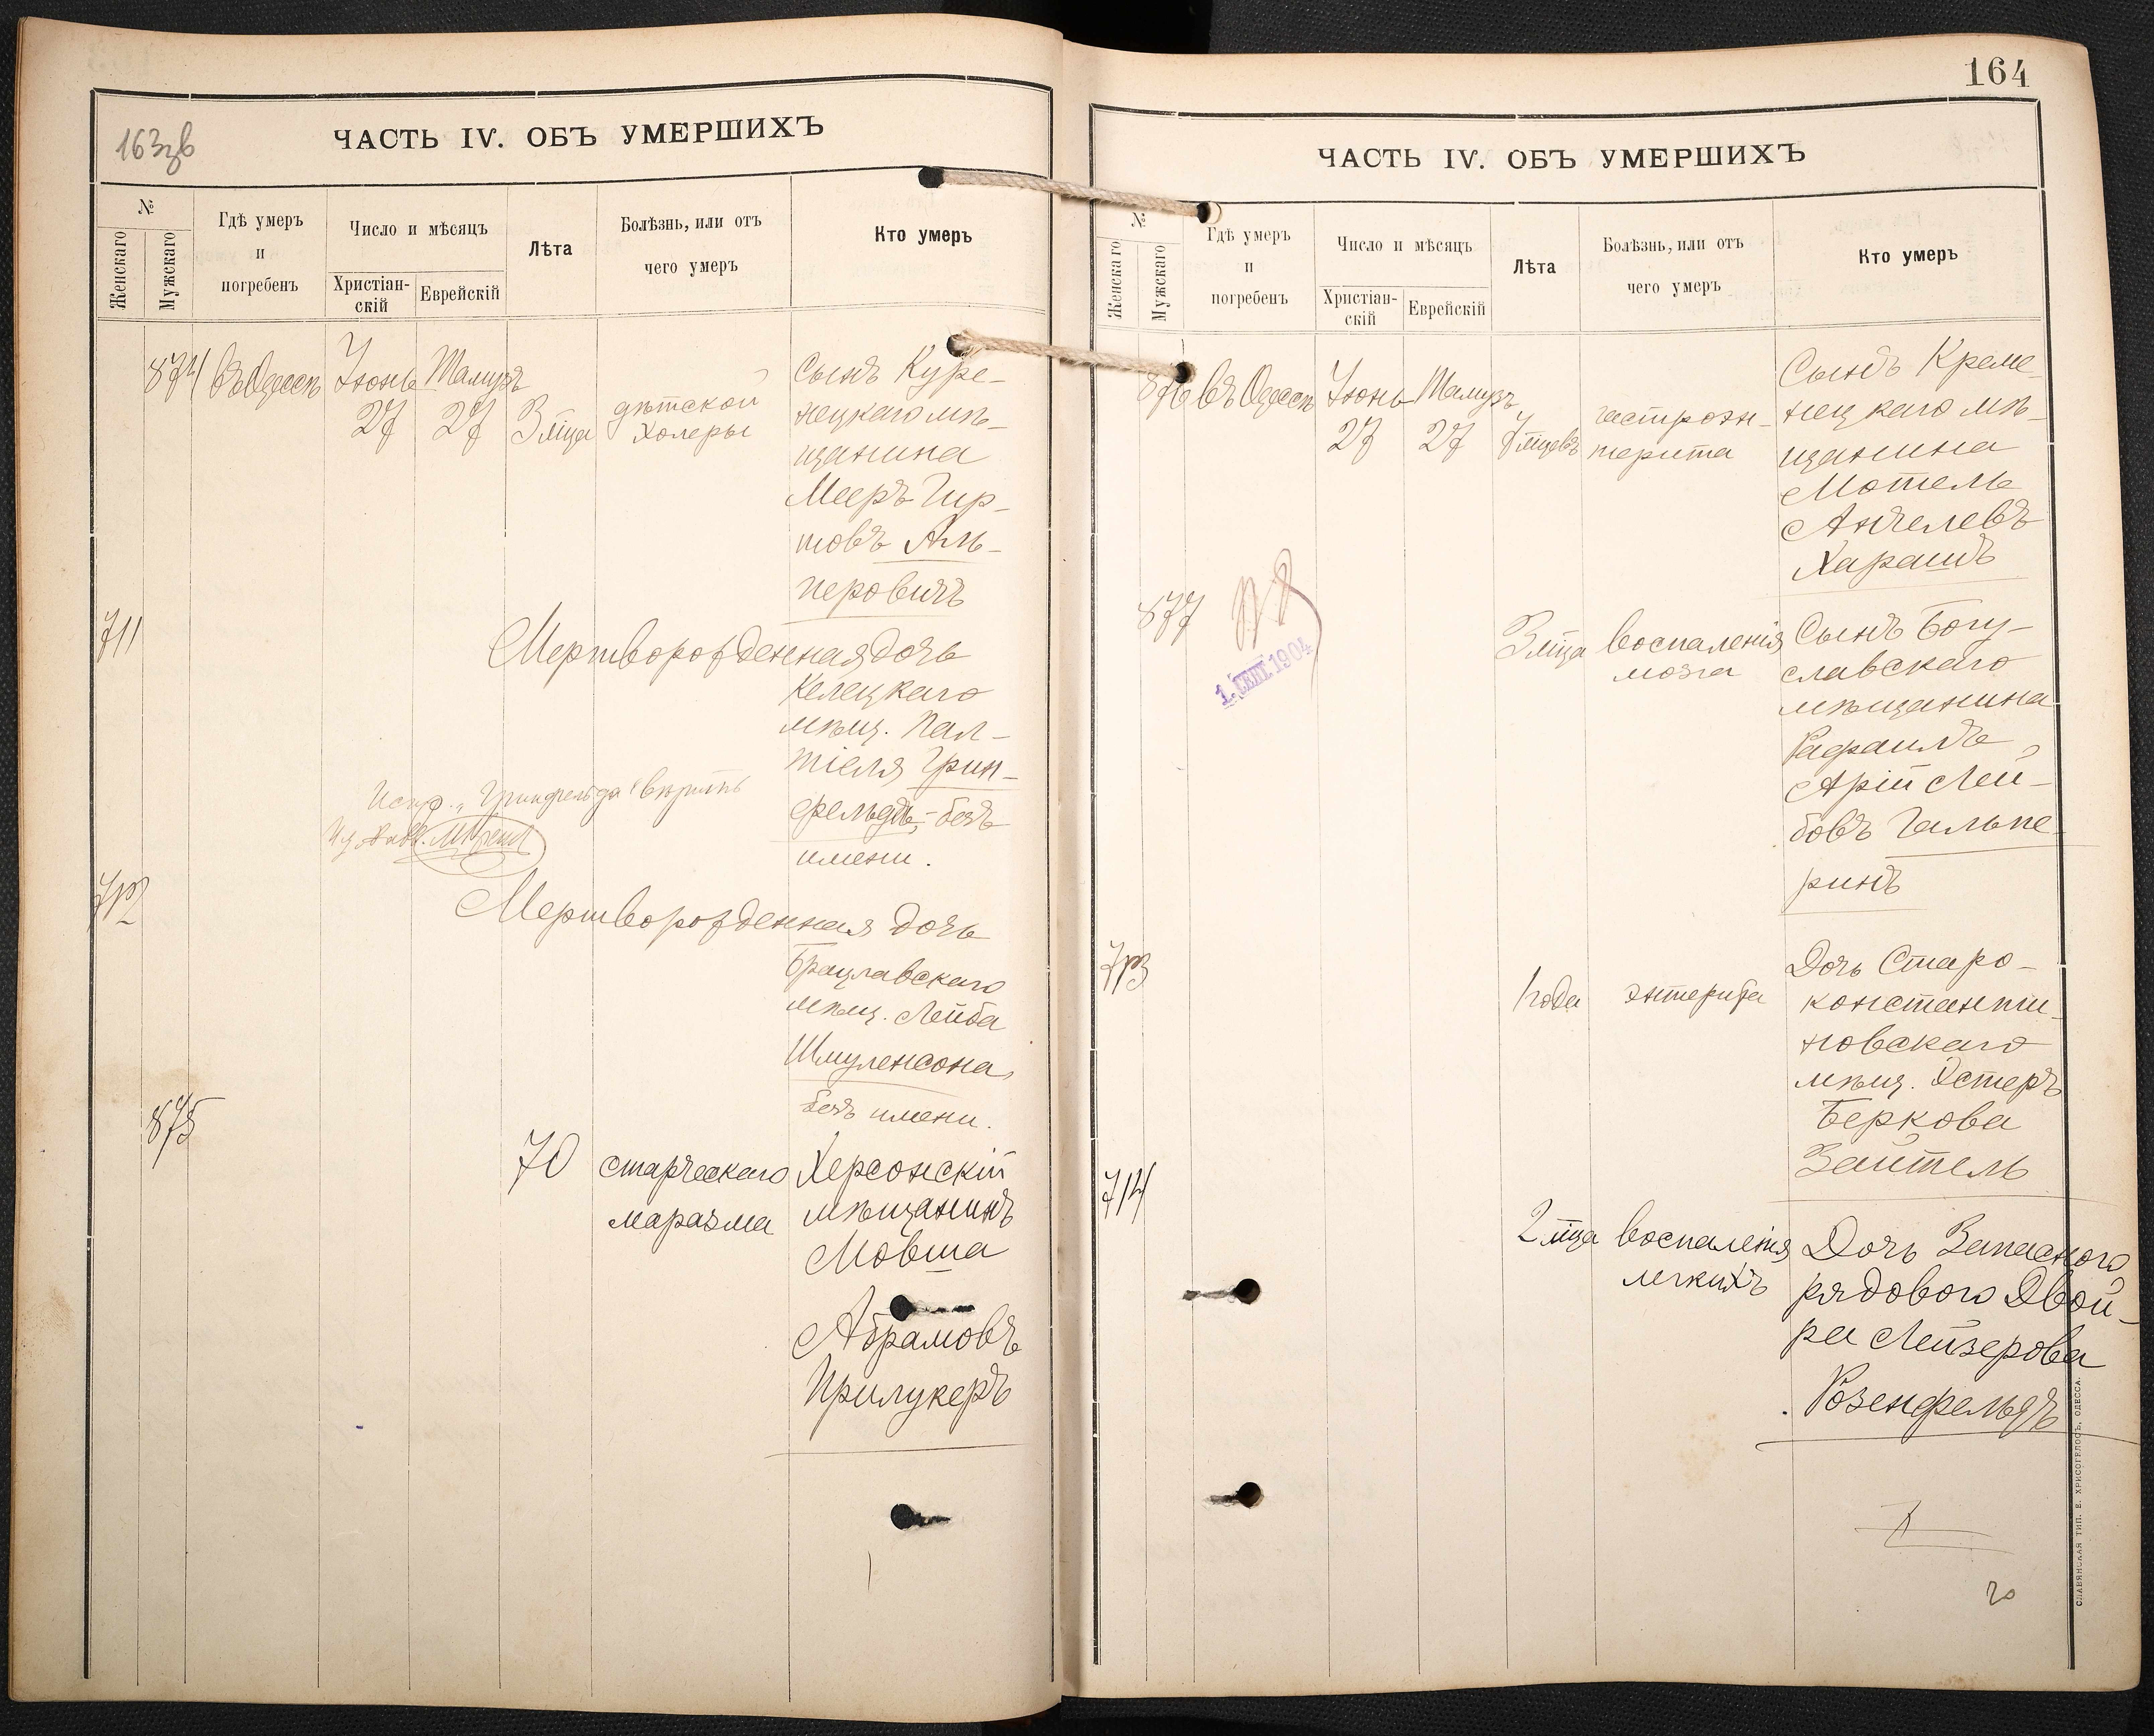 163 зв
ЧАСТЬ IV. ОБЪ УМЕРШИХЪ
№
Женскаго
Мужскаго
Гдѣ умеръ
и
погребенъ
Число и мѣсяцъ
Христіан-
скій
Еврейскій
Лѣта
Болѣзнь, или отъ
чего умеръ
Кто умеръ
874 въ Одессѣ Іюнь 27 Тамузъ 27 3 мца
дѣтской
холеры
Сынъ Куре-
нецкаго мѣ-
щанина
Мееръ Гир-
шовъ Аль-
перовичъ
711
Мертворожденная дочь
Келецкаго
мѣщ. Пал-
тіеля Грин-
фельдъ, - безъ
имени.
Испр. „Гринфельда" вѣрить
712
Мертворожденная дочь
Брацлавскаго
мѣщ. Лейба
Шмуленсона,
безъ имени.
875
70
старческаго
маразма
Херсонскій
мѣщанинъ
Мовша
Абрамовъ
Прилукеръ
164
ЧАСТЬ IV. ОБЪ УМЕРШИХЪ
№
Женскаго
Мужскаго
Гдѣ умеръ
и
погребенъ
Число и мѣсяцъ
Христіан-
скій
Еврейскій
Лѣта
Болѣзнь, или отъ
чего умеръ
Кто умеръ
876 въ Одессѣ Іюнь 27 Тамузъ 27 7 мцевъ
гастроэн-
терита
Сынъ Креме-
нецкаго мѣ-
щанина
Мотель
Анчелевъ
Харашъ
877
1. СЕНТ. 1904
3 мца
воспаленія
мозга
Сынъ Богу-
славскаго
мѣщанина
Рафаилъ
Арій Лей-
бовъ Гальпе-
ринъ
713
1 года
энтерита
Дочь Старо-
константи-
новскаго
мѣщ. Эстеръ
Беркова
Зайтель
714
2 мца
воспаленія
легкихъ
Дочь Запаснаго
рядового Двой-
ра Лейзерова
Розенфельдъ
СЛАВЯНСКАЯ ТИП. Е. ХРИСОГЕЛОСЪ, ОДЕССА.